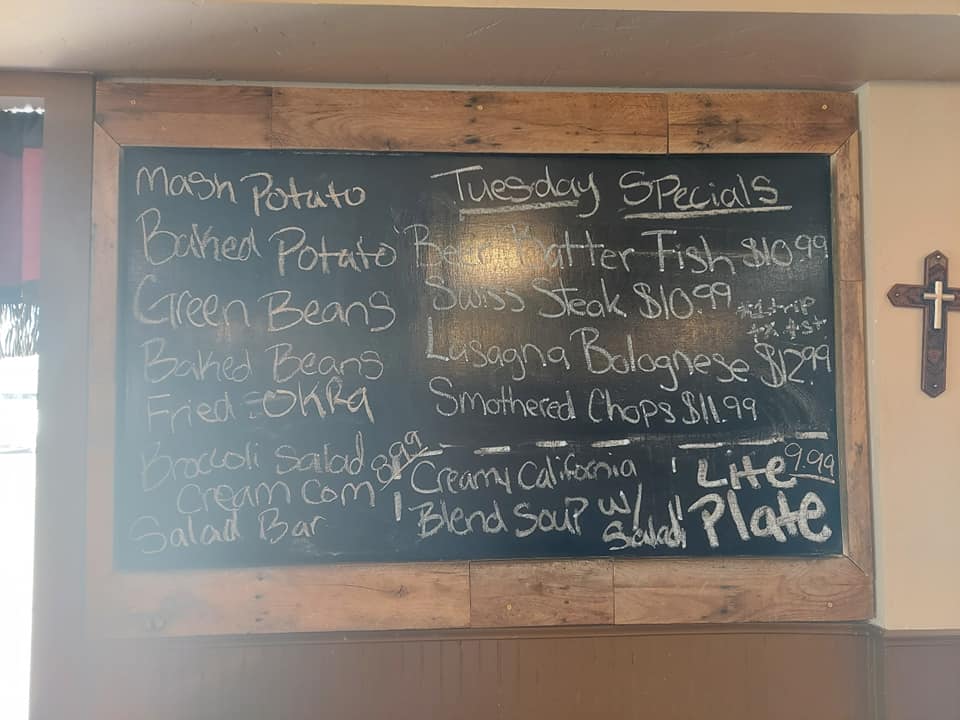 Mash Potato
Baked Potato
Green Beans
Baked Beans
Fried OKRa
Broccoli Salad
Cream Corn
Salad Bar
Tuesday Specials
Beer Batter Fish $10.99
Swiss Steak $10.99
*1 trip
Lasagna Bolognese $12.99
Smothered Chops $11.99
8.99
Creamy California
Blend Soup w/
Salad
Lite 9.99
Plate